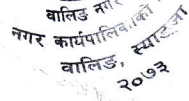 वालिङ नगर
नगर कार्यपालिकाको
वालिङ, स्याङजा
२०७३